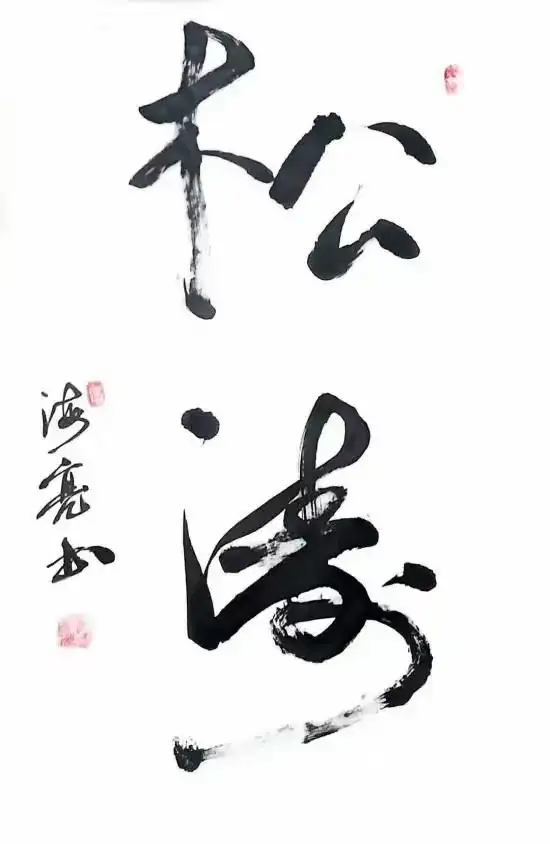 松涛
海亮书